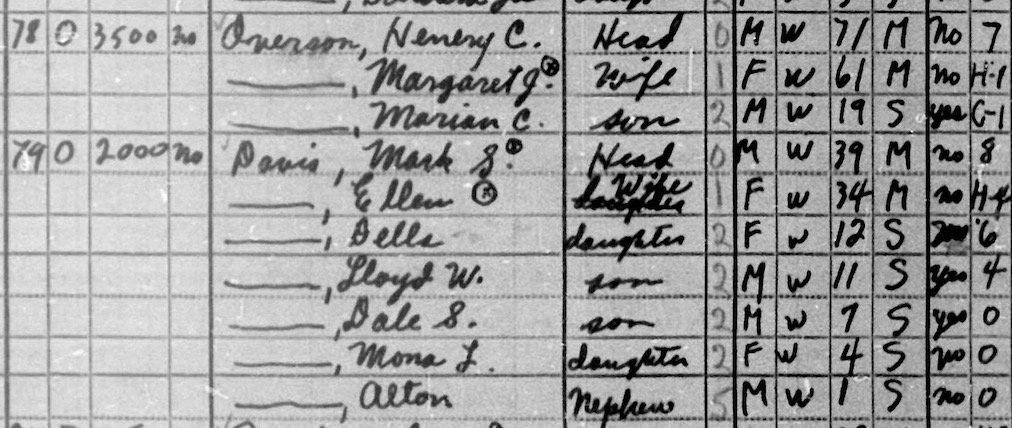 78 0 3500 no Overson, Henery C. Head 0 M W 71 M No 7
———, Margaret J. ⓧ Wife 1 F W 61 M no H-1
———, Marian C. son 2 M W 19 S yes C-1
79 0 2000 no Davis, Mark S. Head 0 M W 39 M no 8
———, Ellen ⓧ Wife daughter 1 F W 34 M no H-4
———, Della daughter 2 F W 12 S 6
———, Lloyd W. son 2 M W 11 S yes 4
———, Dale S. son 2 M W 7 S yes 0
———, Mona L. daughter 2 F W 4 S no 0
———, Alton Nephew 5 M W 1 S no 0